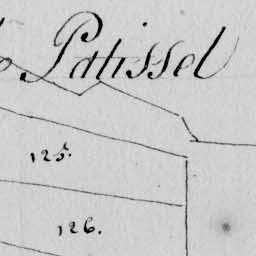 Patissel
125.
126.